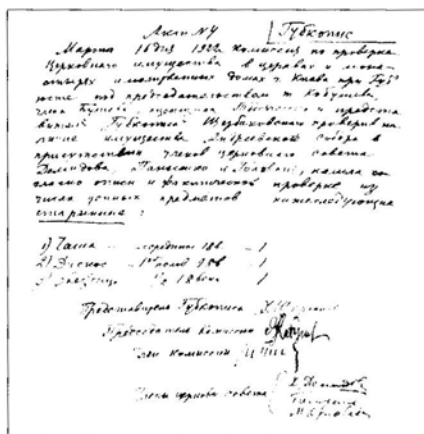 Акт № 4 Губкопис
Марта 16 дня 1922 г. комиссия по проверке
церковного имущества в церквах и мона-
стырях и молитвенных домах г. Киева при Губ
под председательством т. Кобушева,
члена оценщика и предста
вителя Губкописа Щербаковского проверив на
личие имущества Андреевского собора в
присутствии членов церковного совета
Демидова, Панасенко и, нашла со
гласно описи и фактической проверке из
числа ценных предметов нижеследующие
старинные:
1) Чаша середины 18 в. 1
2) Дискос 1 пол. 18 в. 1
3) Звездица 1/2 18 века 1
Представитель Губкописа
Председатель комиссии
Член комиссии
Члены церковн. совета
Демидов